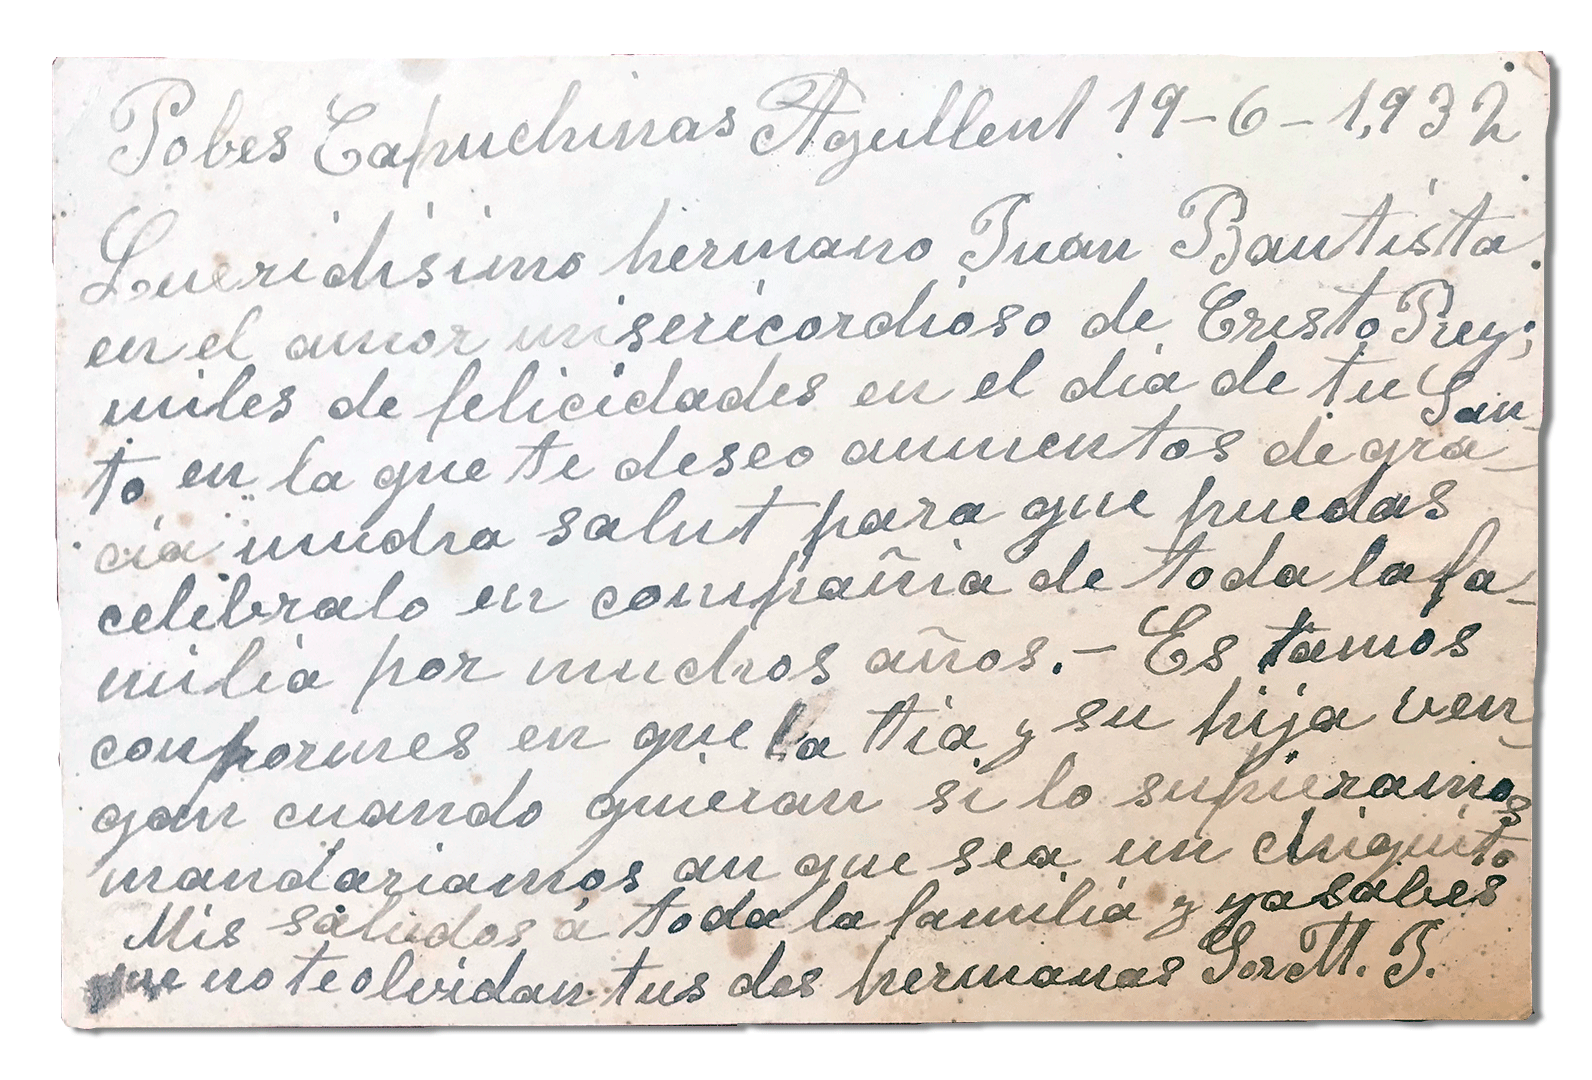 Pobes Capuchinas Agullent 19-6-1,932
Queridisimo hermano Juan Bautista
en el amor misericordioso de Cristo Rey;
miles de felicidades en el dia de tu San-
to en la que te deseo aumentos de gra-
cia mudra salut para que puedas
celebralo en compañia de toda la fa-
milia por muchos años.- Es tamos
conformes en que la tia y su hija ven-
gan cuando quieran si lo supieramos
mandariamos an que sea un chiquito
Mis saludos a toda la familia y ya sabes
que no te olvidan tus dos hermanas Sor M. J.